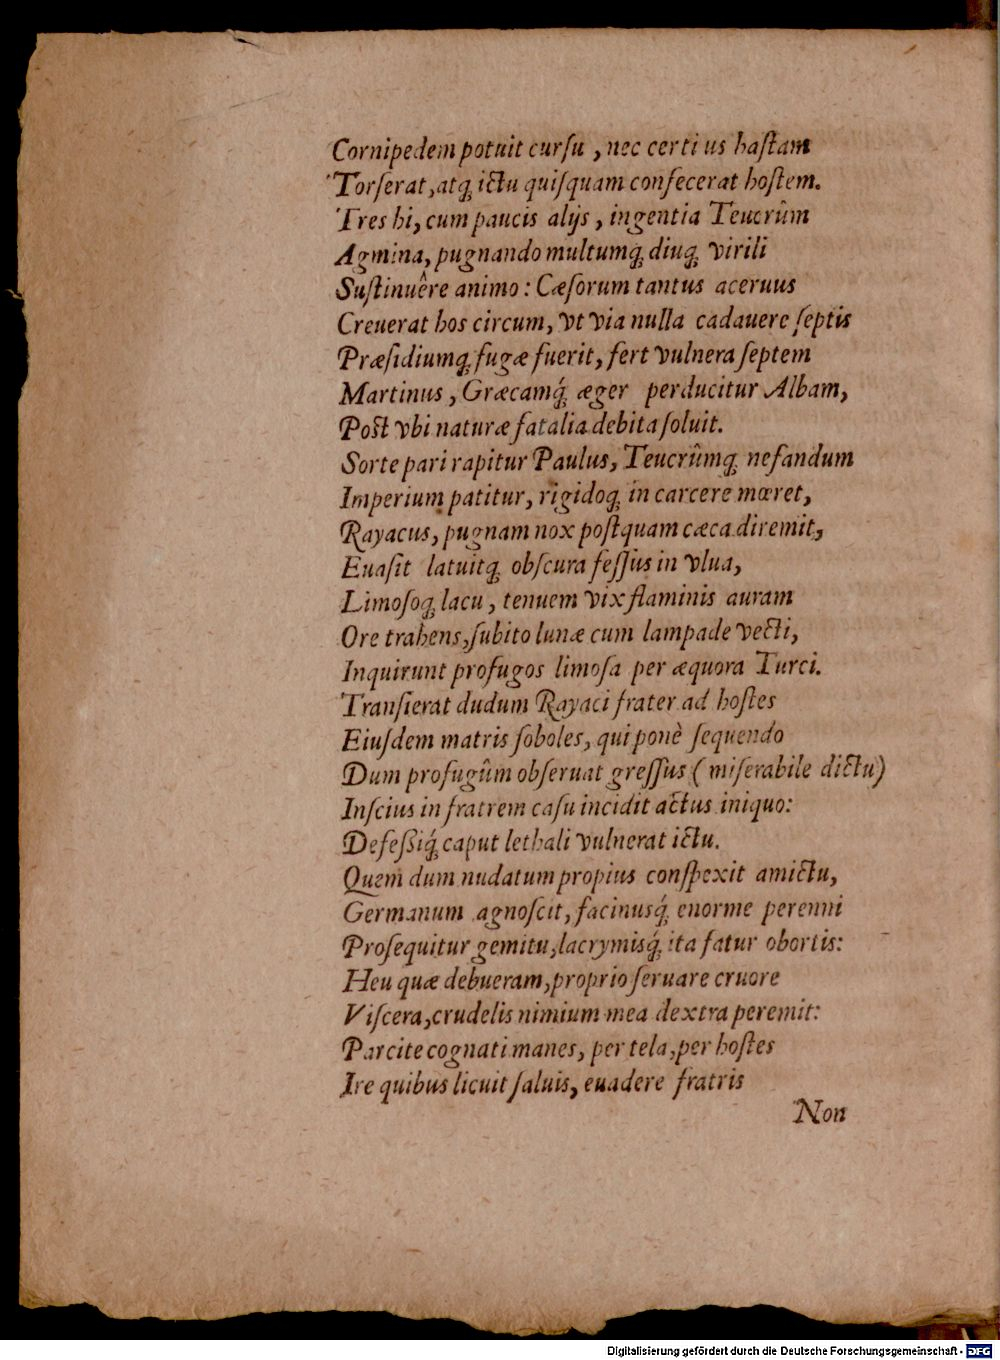 Cornipedem potuit curſu , nec certi us haſtam
Torſerat, atq́; ictu quiſquam confecerat hoſtem.
Tres hi, cum paucis alijs , ingentia Teucrûm
Agmina, pugnando multumq́; diuq́; virili
Suſtinuêre animo : Cæſorum tantus aceruus
Creuerat hos circum, vt via nulla cadauere ſeptis
Præſidiumq́; fugæ fuerit, fert vulnera ſeptem
Martinus , Græcamq́; æger perducitur Albam,
Poſt vbi naturæ fatalia debita ſoluit.
Sorte pari rapitur Paulus, Teucrûmq́; nefandum
Imperium patitur, rigidoq́; in carcere mœret,
Rayacus, pugnam nox poſtquam cæca diremit,
Euaſit latuitq́; obſcura feſſus in vlua,
Limoſoq́; lacu , tenuem vix flaminis auram
Ore trahens, ſubito lunæ cum lampade vecti,
Inquirunt profugos limoſa per æquora Turci.
Tranſierat dudum Rayaci frater ad hoſtes
Eiuſdem matris ſoboles, qui ponè ſequendo
Dum profugûm obſeruat greſſus ( miſerabile dictu)
Inſcius in fratrem caſu incidit actus iniquo:
Defeßiq́; caput lethali vulnerat ictu.
Quem dum nudatum propius conſpexit amictu,
Germanum agnoſcit, facinusq́; enorme perenni
Proſequitur gemitu, lacrymisq́; ita fatur obortis:
Heu quæ debueram, proprio ſeruare cruore
Viſcera, crudelis nimium mea dextra peremit:
Parcite cognati manes, per tela, per hoſtes
Ire quibus licuit ſaluis, euadere fratris
Non
Digitalisierung gefördert durch die Deutsche Forschungsgemeinschaft - DFG